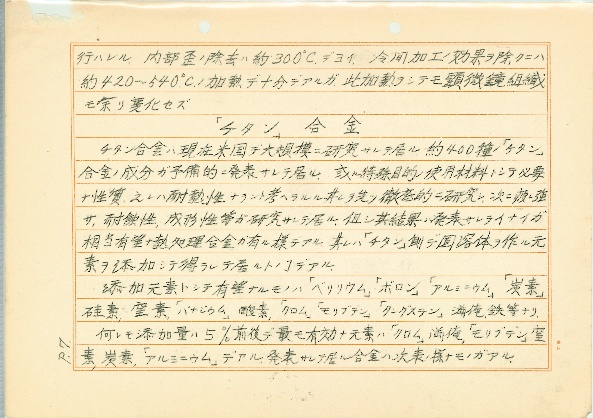 行ハレル 内部歪ノ除去ハ約300℃デヨイ 冷間加工ノ効果ヲ除クニハ
約420〜540℃ノ加熱デ十分デアルガ此加熱ヲシテモ顕微鏡組織
モ余リ変化セズ
「チタン」合金
チタン合金ハ現在米国デ大規模ニ研究サレテ居ル 約400種ノ「チタン」
合金ノ成分ガ予備的ニ発表サレテ居ル 或ル特殊目的ノ使用材料トシテ必要
ナ性質 ハ耐熱性ナラント考ヘラル 先ヅ徹底的ニ研究シ次ニ
耐蝕性,成形性等ガ研究サレテ居ル 但シ其結果ハ発表サレテイナイガ
相当有望ナ熱処理合金ガ有ル様デアル 其レハ「チタン」側デ固溶体ヲ作ル元
素ヲ添加シテ得ラレテ居ルトノ デアル
添加元素トシテ有望ナルモノハ「ベリリウム」「ボロン」「アルミニウム」「炭素」
硅素 窒素「バナジウム」酸素「クロム」「モリブデン」「タングステン」満俺,鉄等ナリ
何レモ添加量ハ5%前後デ最モ有効ナ元素ハ「クロム」満俺,「モリブデン」窒
素,炭素,「アルミニウム」デアル.発表サレテ居ル合金ハ次表ノ様ナモノガアル.
P.7